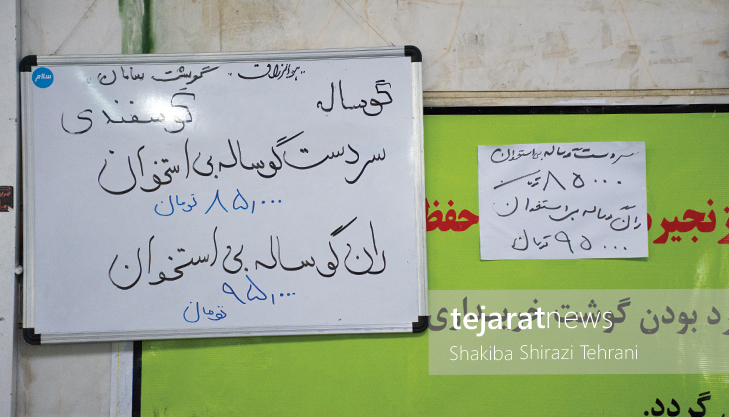 سلام
هوالرزاق گوشت سامان
گوساله
گوسفندی
سردست گوساله بی استخوان
۸۵,۰۰۰ تومان
ران گوساله بی استخوان
۹۵,۰۰۰ تومان
سردست گوساله بی استخوان
۸۵۰۰۰ تومان
ران گوساله بی استخوان
۹۵۰۰۰ تومان
زنجیره
حفظ
بودن گوشت خریداری
گردد.
tejaratnews
Shakiba Shirazi Tehrani